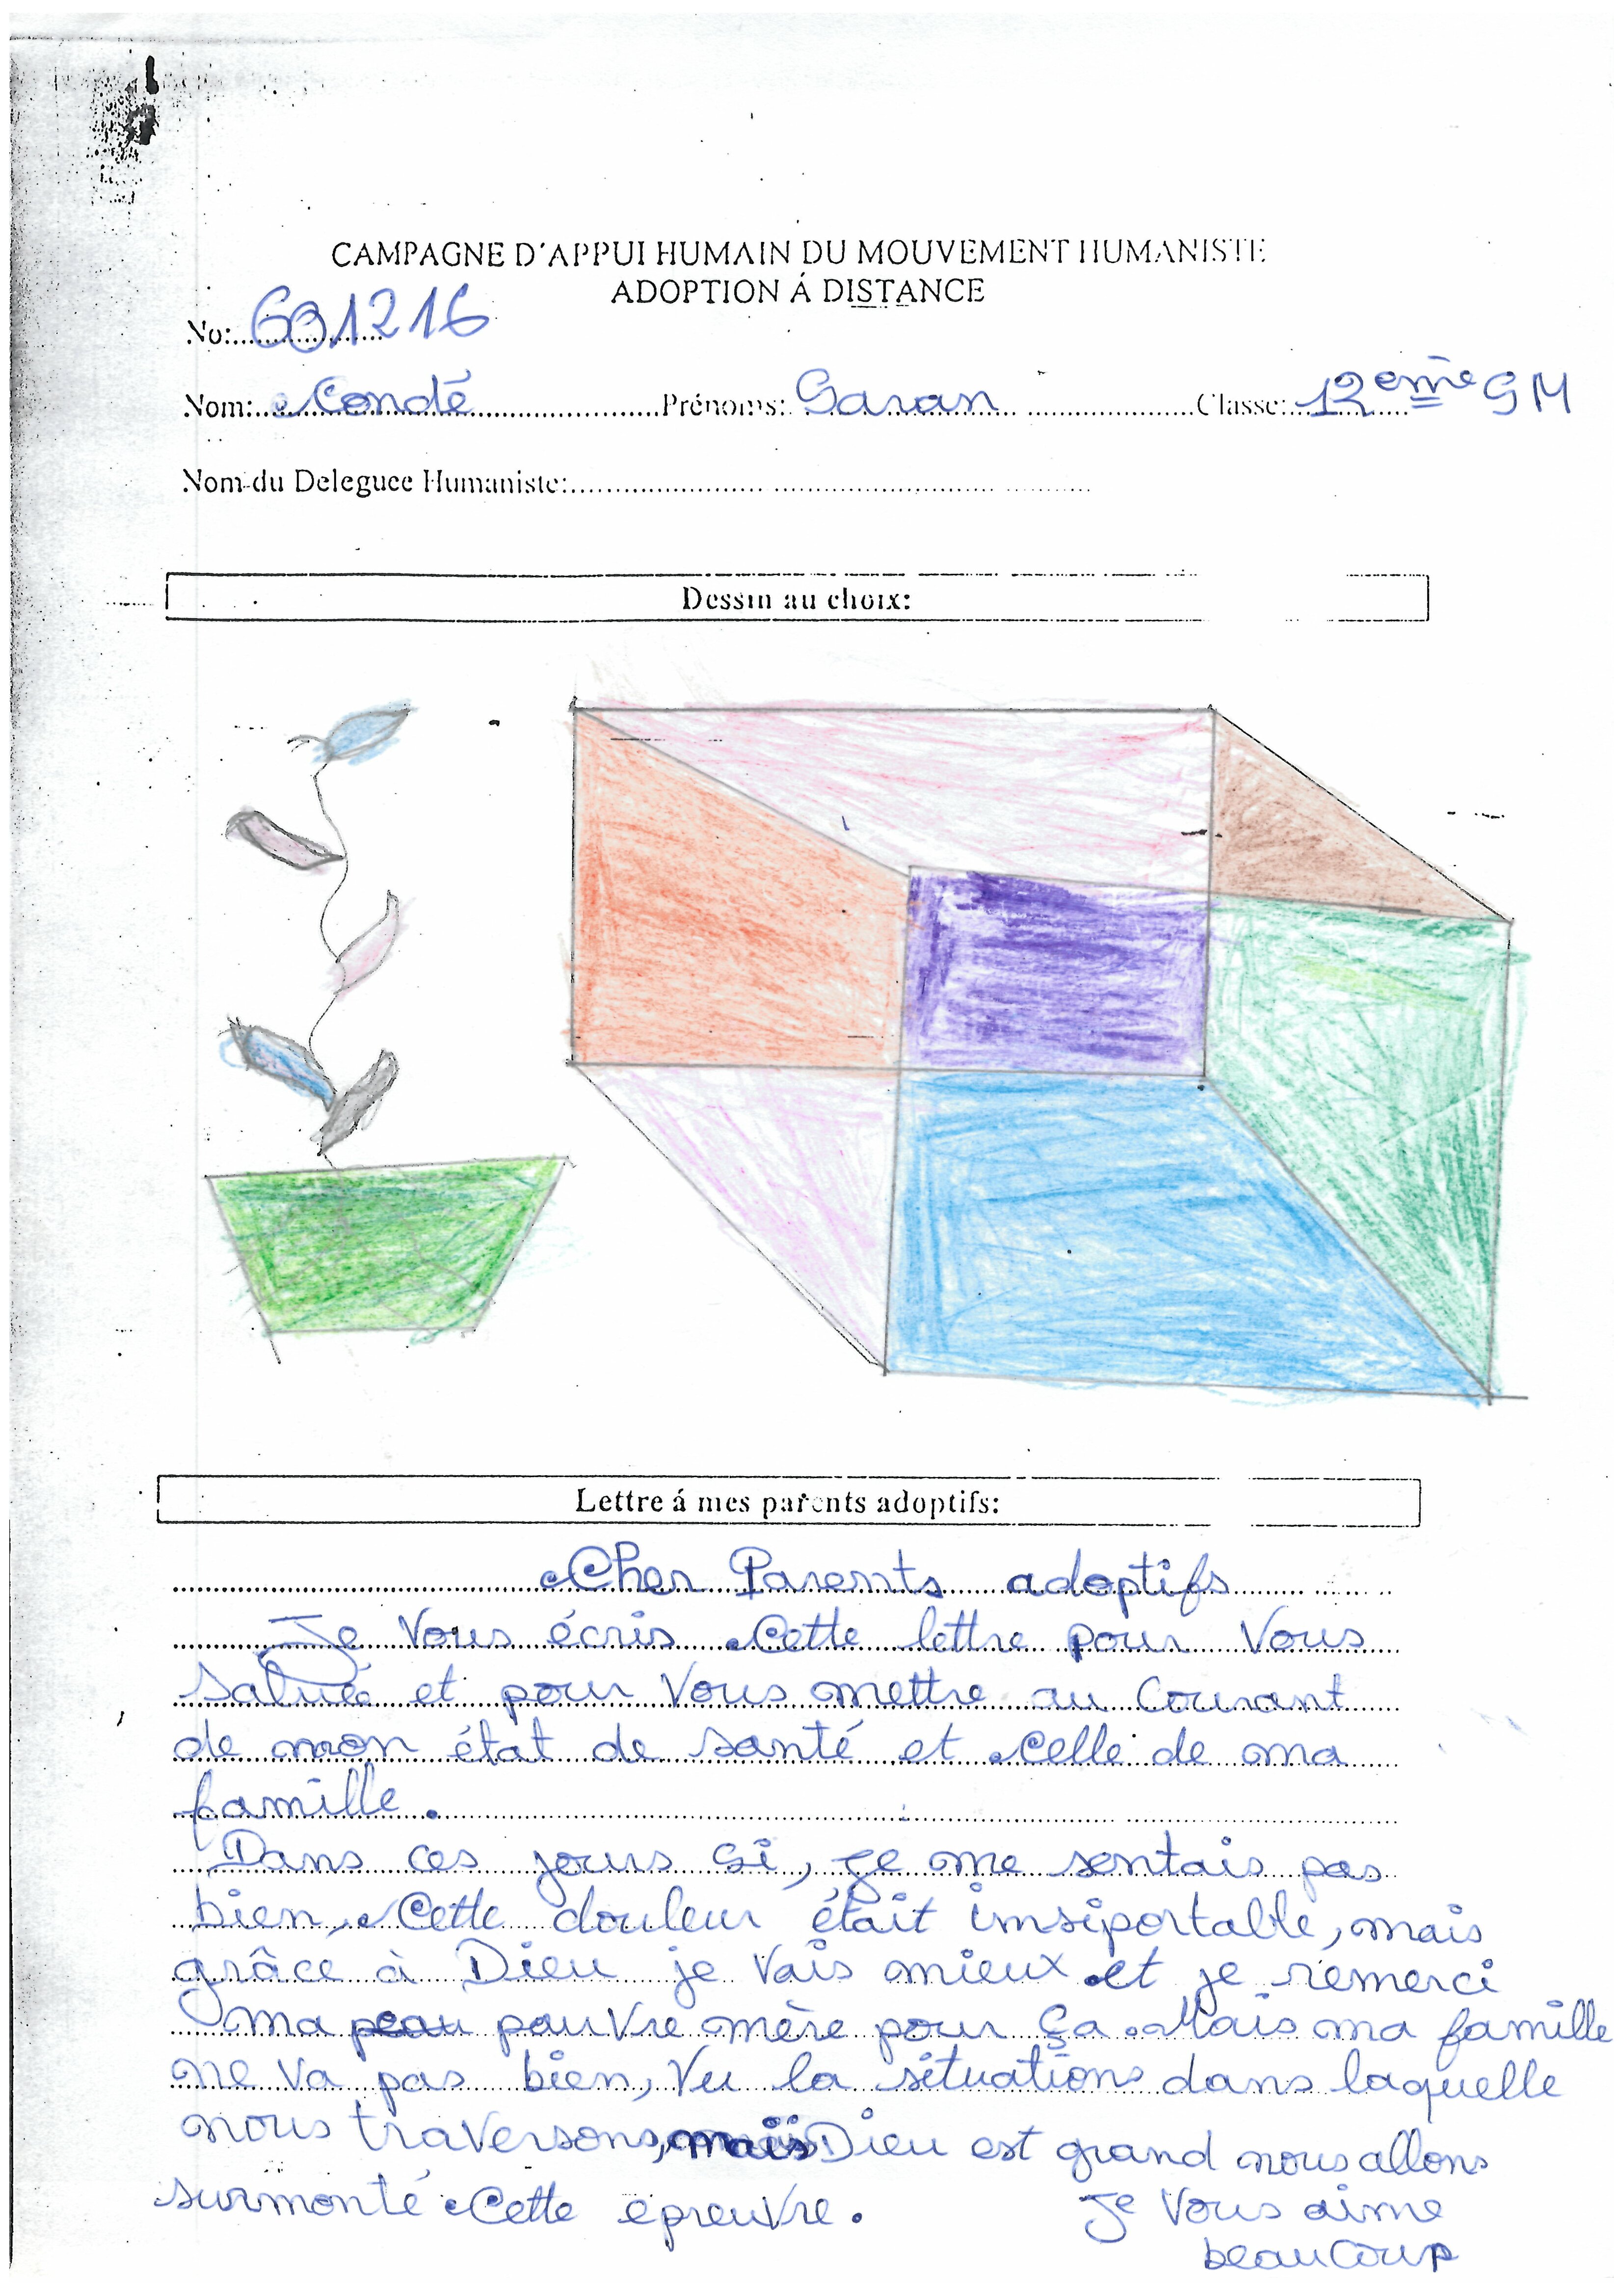 CAMPAGNE D'APPUI HUMAIN DU MOUVEMENT HUMANISTE
ADOPTION Á DISTANCE
No: 601216
Nom: Condé Prénoms: Saran Classe: 12ème SM
Nom du Deleguee Humaniste:
Dessin au choix:
Lettre á mes parents adoptifs:
Cher Parents adoptifs
Je Vous écris Cette lettre pour Vous
saluée et pour Vous mettre au Courant
de mon état de santé et Celle de ma
famille.
Dans ces jours si, je me sentais pas
bien, Cette douleur était imsiportable, mais
grâce à Dieu je Vais mieux et je remerci
ma peau pauvre mère pour Ça. Mais ma famille
ne va pas bien, Vu la situations dans laquelle
nous traversons, mais Dieu est grand nous allons
surmonté Cette epreuvre. Je Vous aime
beauCoup